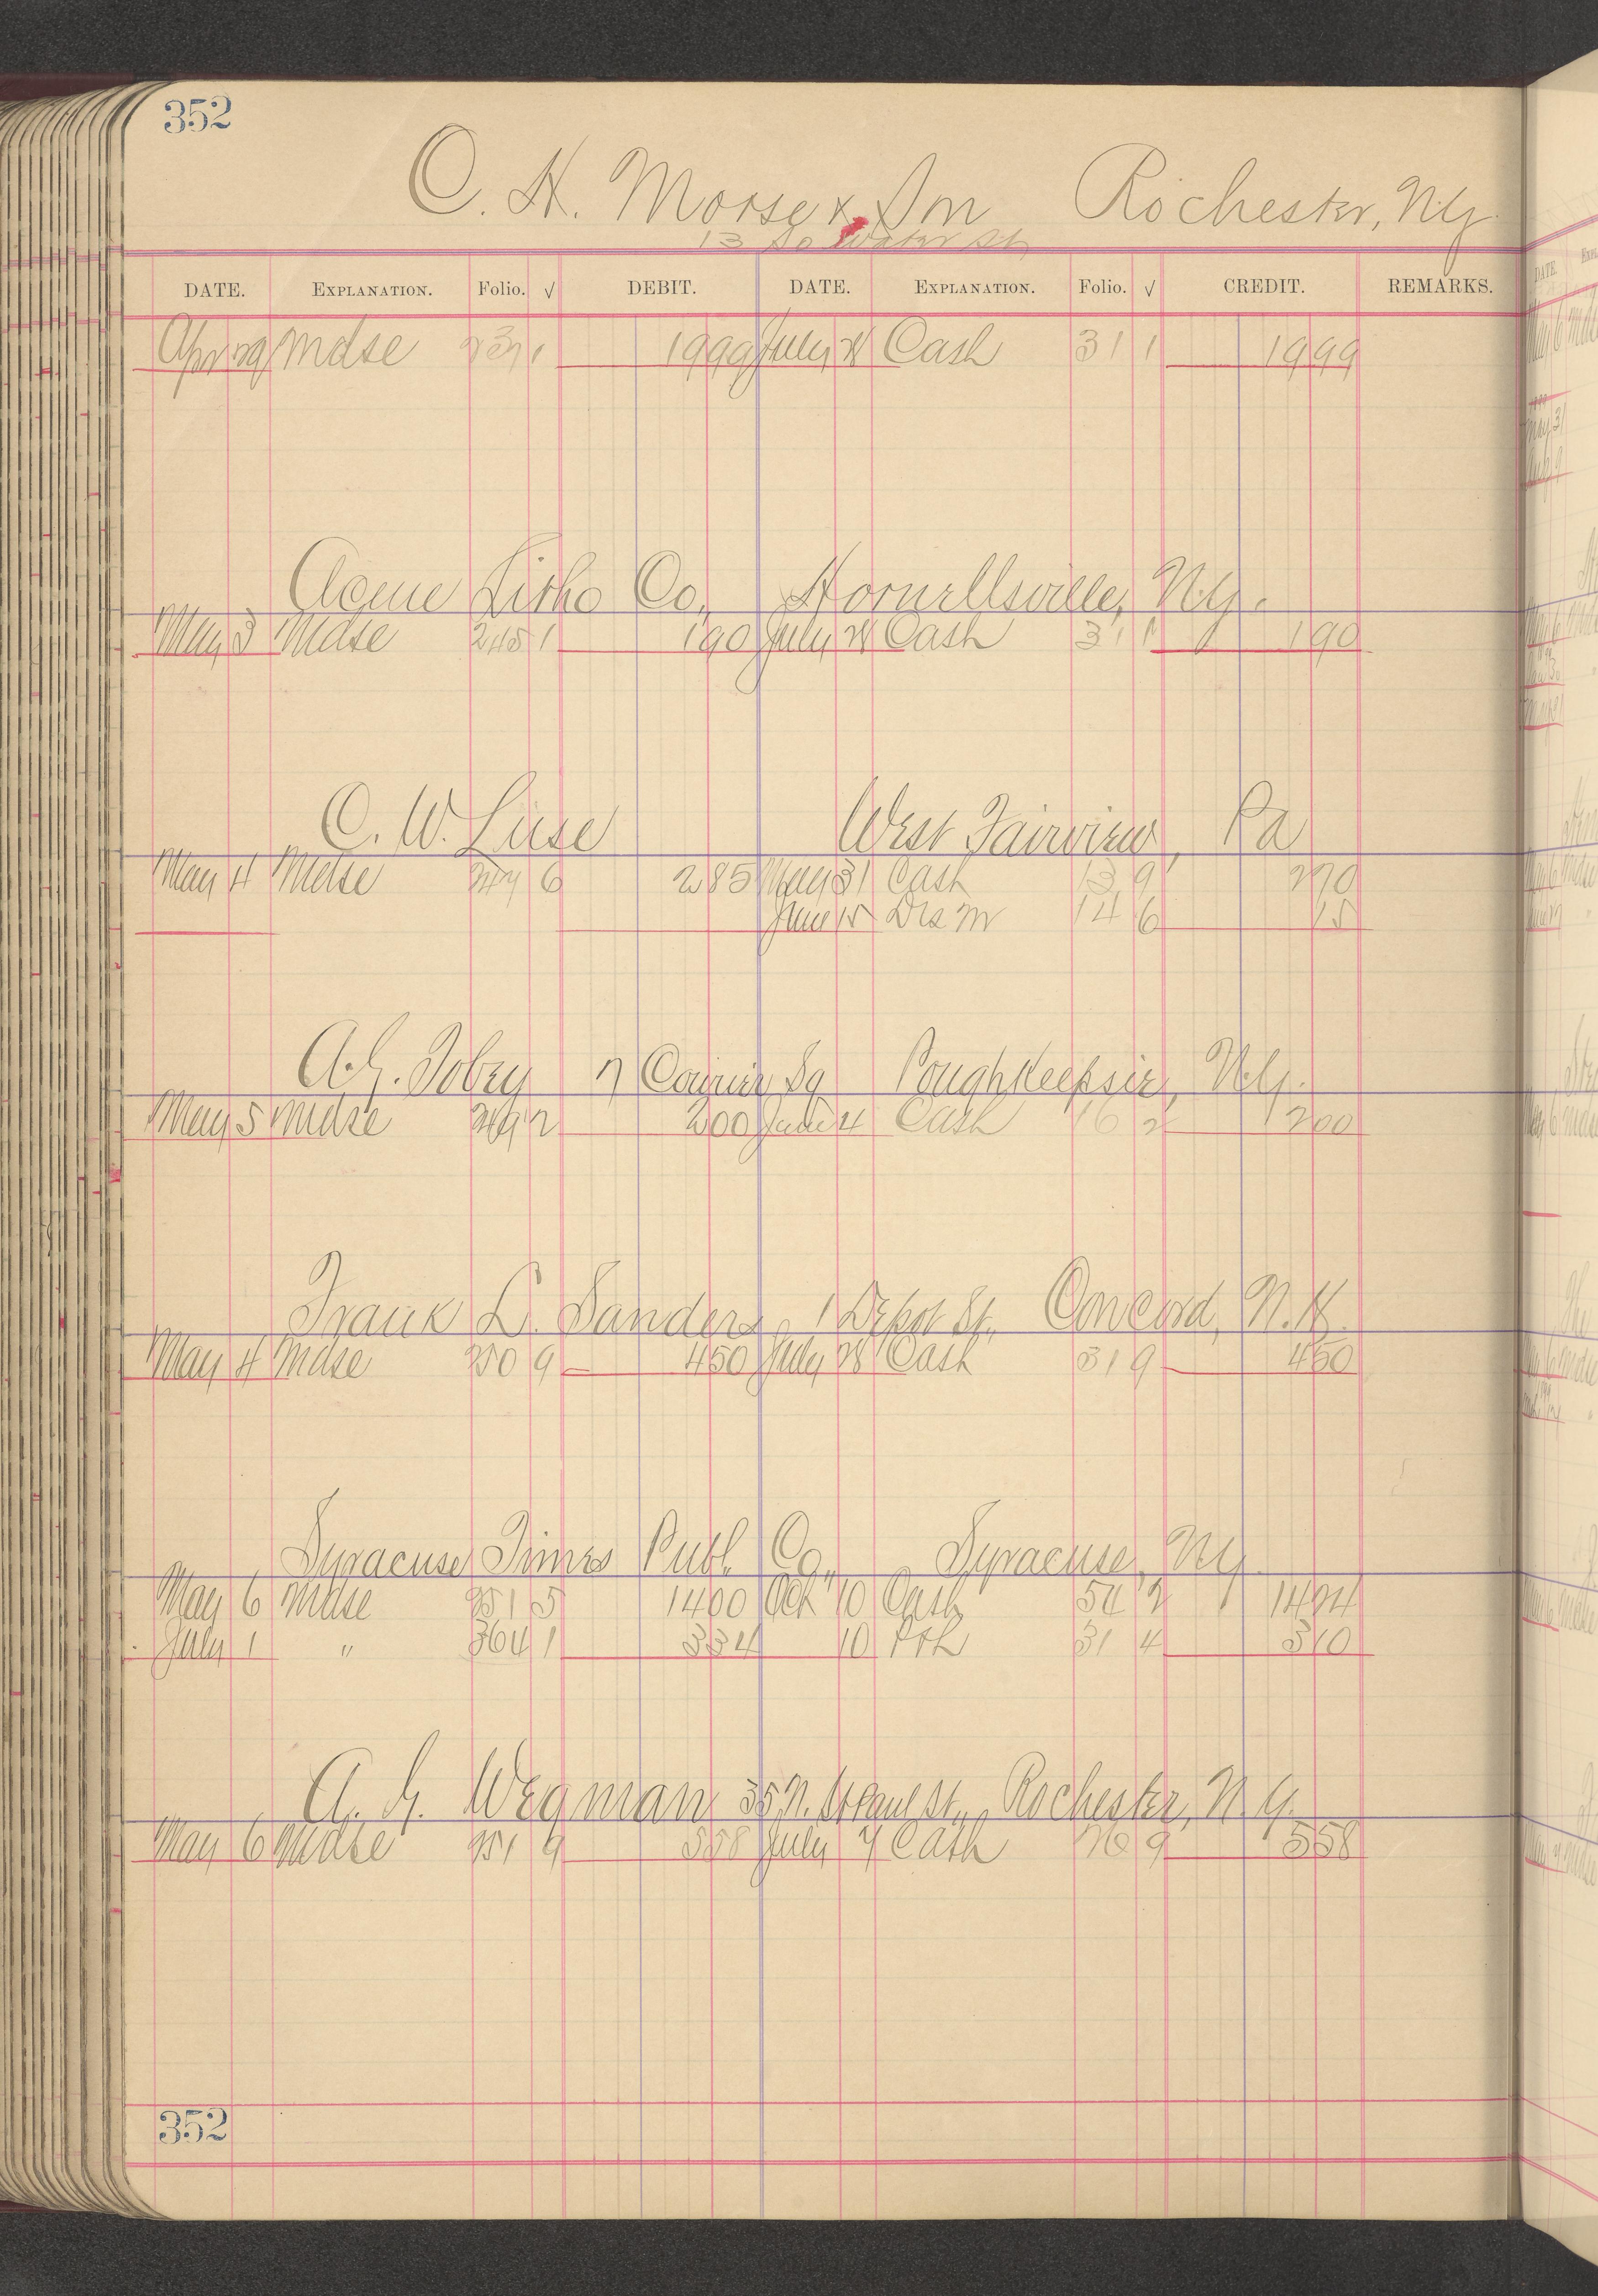 352
C. H. Morse & Son Rochester, N.Y.
13 So Water St
DATE. EXPLANATION. Folio. √ DEBIT. DATE. EXPLANATION. Folio. √ CREDIT. REMARKS.
Apr 29 Mdse 1 1999 July 28 Cash 31 1 1999
Acme Litho Co, Hornellsville, N.Y.
May 3 Mdse 245 1 190 July 28 Cash 31 1 190
C. W. Luse West Fairview, Pa
May 4 Mdse 247 6 285 May 31 Cash 13 9 270
June 15 Dis M 14 6 15
A. G. Tobey 7 Courier Sq Poughkeepsie, N.Y.
May 5 Mdse 249 2 200 June 4 Cash 16 2 200
Frank L. Sanders, 1 Depot St., Concord, N.H.
May 4 Mdse 250 9 450 July 28 Cash 31 9 450
Syracuse Times Publ. Co., Syracuse, N.Y.
May 6 Mdse 251 5 1400 Oct 10 Cash 54 2 1424
July 1 " 364 1 334 10 31 4 310
A. G. Wegman 35 N. St Paul St., Rochester, N.Y.
May 6 Mdse 251 9 558 July 7 Cash 26 9 558
352